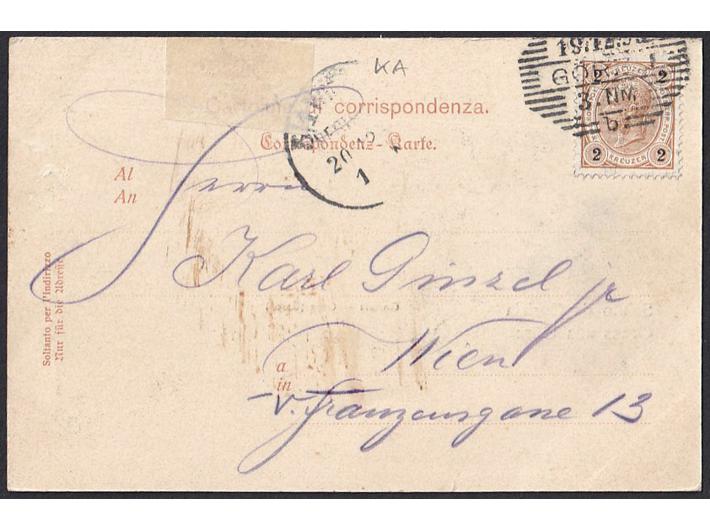 KA
corrispondenza.
Correspondenz-Karte.
Al
An
Herrn
Karl Ginzel jr
a
in
Wien
V. Franzensgasse 13
Soltanto per l'indirizzo
Nur für die Adresse
19.12.9
GÖR
3. NM
b
2 2
2 KREUZER 2
20 12
1